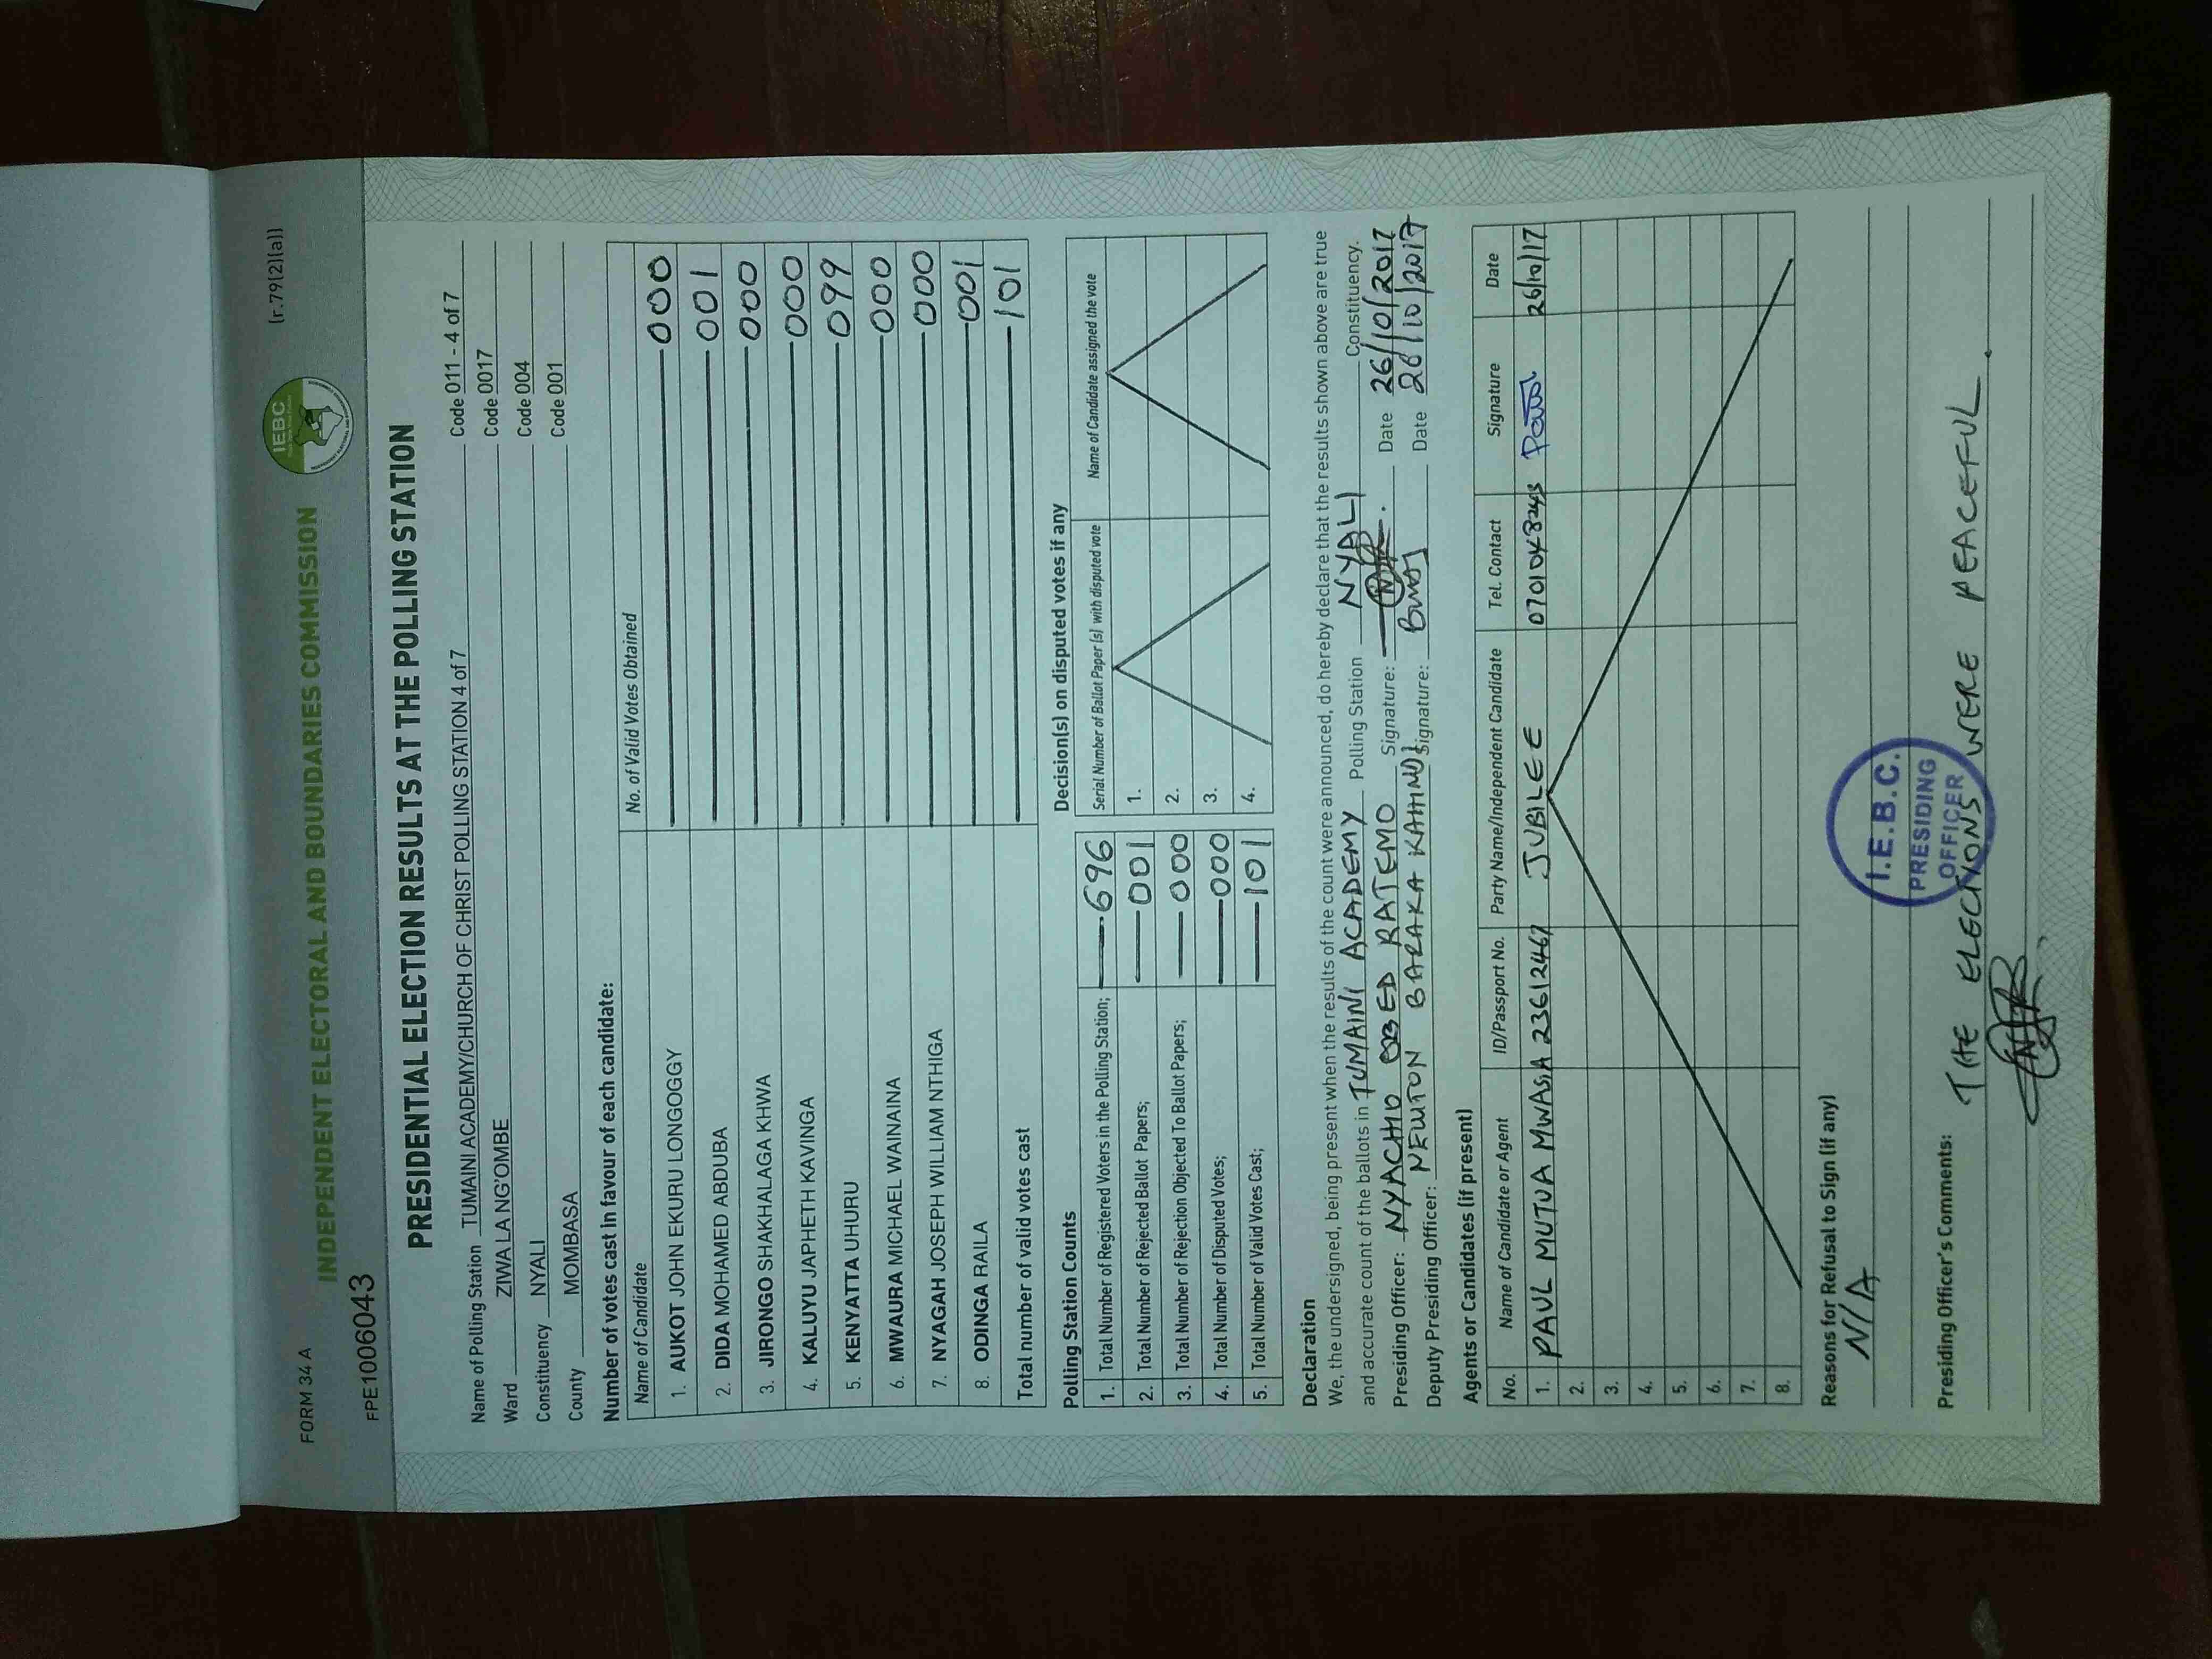 FORM 34 A
(r.79(2)(a))
INDEPENDENT ELECTORAL AND BOUNDARIES COMMISSION
IEBC
FPE1006043
PRESIDENTIAL ELECTION RESULTS AT THE POLLING STATION
Name of Polling Station TUMAINI ACADEMY/CHURCH OF CHRIST POLLING STATION 4 of 7 Code 011 - 4 of 7
Ward ZIWA LA NG'OMBE Code 0017
Constituency NYALI Code 004
County MOMBASA Code 001
Number of votes cast in favour of each candidate:
Name of Candidate No. of Valid Votes Obtained
1. AUKOT JOHN EKURU LONGOGGY 000
2. DIDA MOHAMED ABDUBA 001
3. JIRONGO SHAKHALAGA KHWA 000
4. KALUYU JAPHETH KAVINGA 000
5. KENYATTA UHURU 099
6. MWAURA MICHAEL WAINAINA 000
7. NYAGAH JOSEPH WILLIAM NTHIGA 000
8. ODINGA RAILA 001
Total number of valid votes cast 101
Polling Station Counts
1. Total Number of Registered Voters in the Polling Station; 696
2. Total Number of Rejected Ballot Papers; 001
3. Total Number of Rejection Objected To Ballot Papers; 000
4. Total Number of Disputed Votes; 000
5. Total Number of Valid Votes Cast; 101
Decision(s) on disputed votes if any
Serial Number of Ballot Paper (s) with disputed vote Name of Candidate assigned the vote
1.
2.
3.
4.
Declaration
We, the undersigned, being present when the results of the count were announced, do hereby declare that the results shown above are true
and accurate count of the ballots in TUMAINI ACADEMY Polling Station NYALI Constituency.
Presiding Officer: NYACHIO OBED RATEMO Signature: Date 26/10/2017
Deputy Presiding Officer: NEWTON BARAKA KAHINDI Signature: Date 26/10/2017
Agents or Candidates (if present)
No. Name of Candidate or Agent ID/Passport No. Party Name/Independent Candidate Tel. Contact Signature Date
1. PAUL MUTUA MWASIA 23612467 JUBILEE 0701048343 26/10/17
2.
3.
4.
5.
6.
7.
8.
Reasons for Refusal to Sign (if any)
N/A
I.E.B.C.
PRESIDING
OFFICER
Presiding Officer's Comments: THE ELECTIONS WERE PEACEFUL.